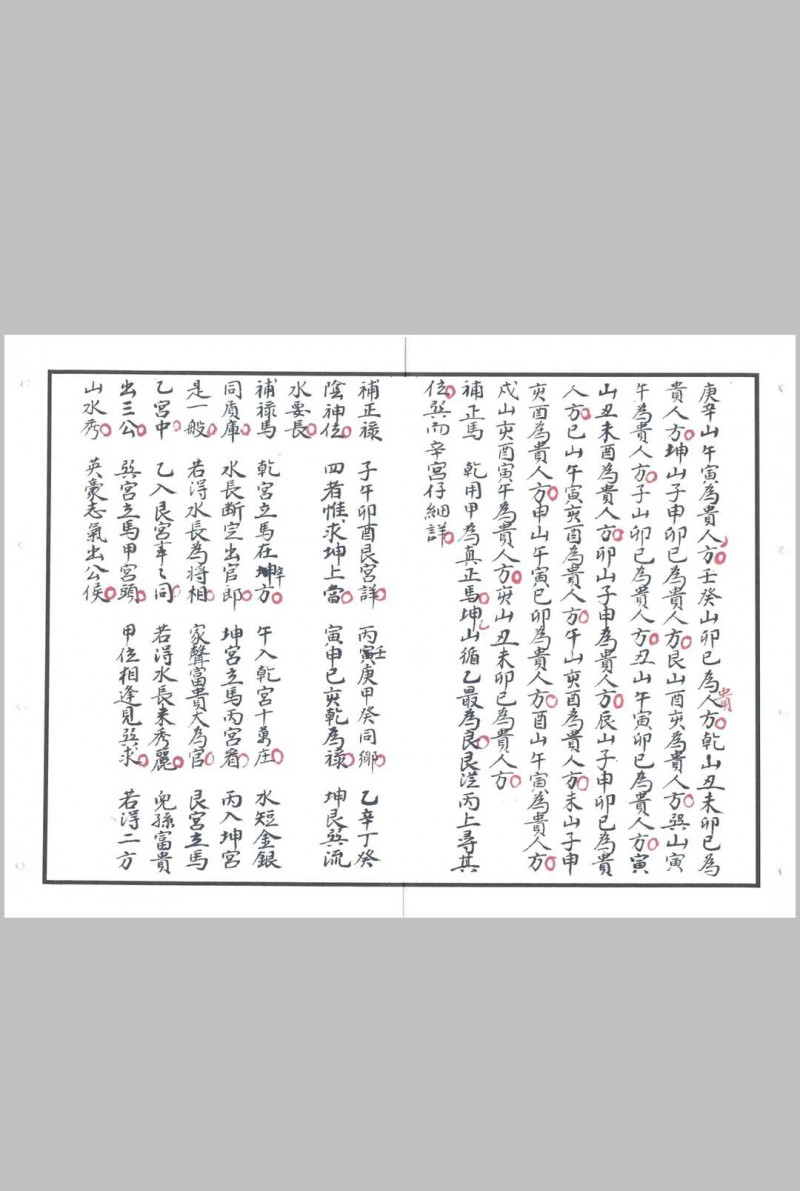 庚辛山午寅為貴人方。壬癸山卯巳為貴人方。乾山丑未卯巳為
貴人方。坤山子申卯巳為貴人方。艮山酉亥為貴人方。巽山寅
午為貴人方。子山卯巳為貴人方。丑山午寅卯巳為貴人方。寅
山丑未酉為貴人方。卯山子申為貴人方。辰山子申卯巳為貴
人方。巳山午寅亥酉為貴人方。午山亥酉為貴人方。未山子申
亥酉為貴人方。申山午寅巳卯為貴人方。酉山午寅為貴人方。
戍山亥酉寅午為貴人方。亥山丑未卯巳為貴人方。
補正馬 乾用甲為真正馬。坤山循乙最為良。艮從丙上尋其
位。巽向辛宮仔細詳。
補正祿 子午卯酉艮宮詳。丙壬庚甲癸同鄉。乙辛丁癸
陰神位。四者惟求坤上當。寅申巳亥乾為祿。坤艮巽流
水要長。
補祿馬 乾宮立馬在辛方。午入乾宮十萬庄。水短金銀
同質庫。水長断定出官郎。坤宮立馬丙宮看。丙入坤宮
是一般。若得水長為將相。家聲富貴大為官。艮宮立馬
乙宮中。乙入艮宮事々同。若得水長来秀麗。兒孫富貴
出三公。巽宮立馬甲宮頭。甲位相逢見巽求。若得二方
山水秀。英豪志氣出公侯。